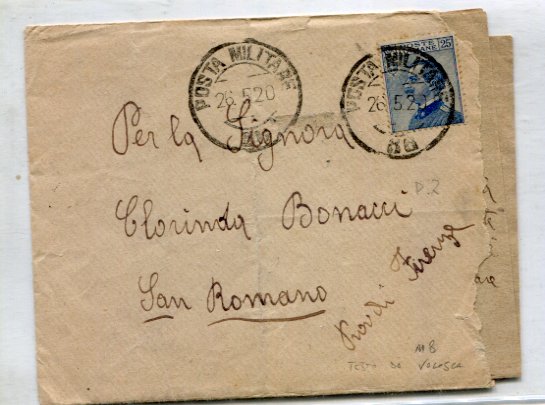 POSTA MILITARE
26.5.20
POSTE
25
POSTA MILITARE
26.5.20
Per la Signora
P.2
Clorinda Bonacci
San Romano
Prov di Firenze
TESTO DA VOLOSCA